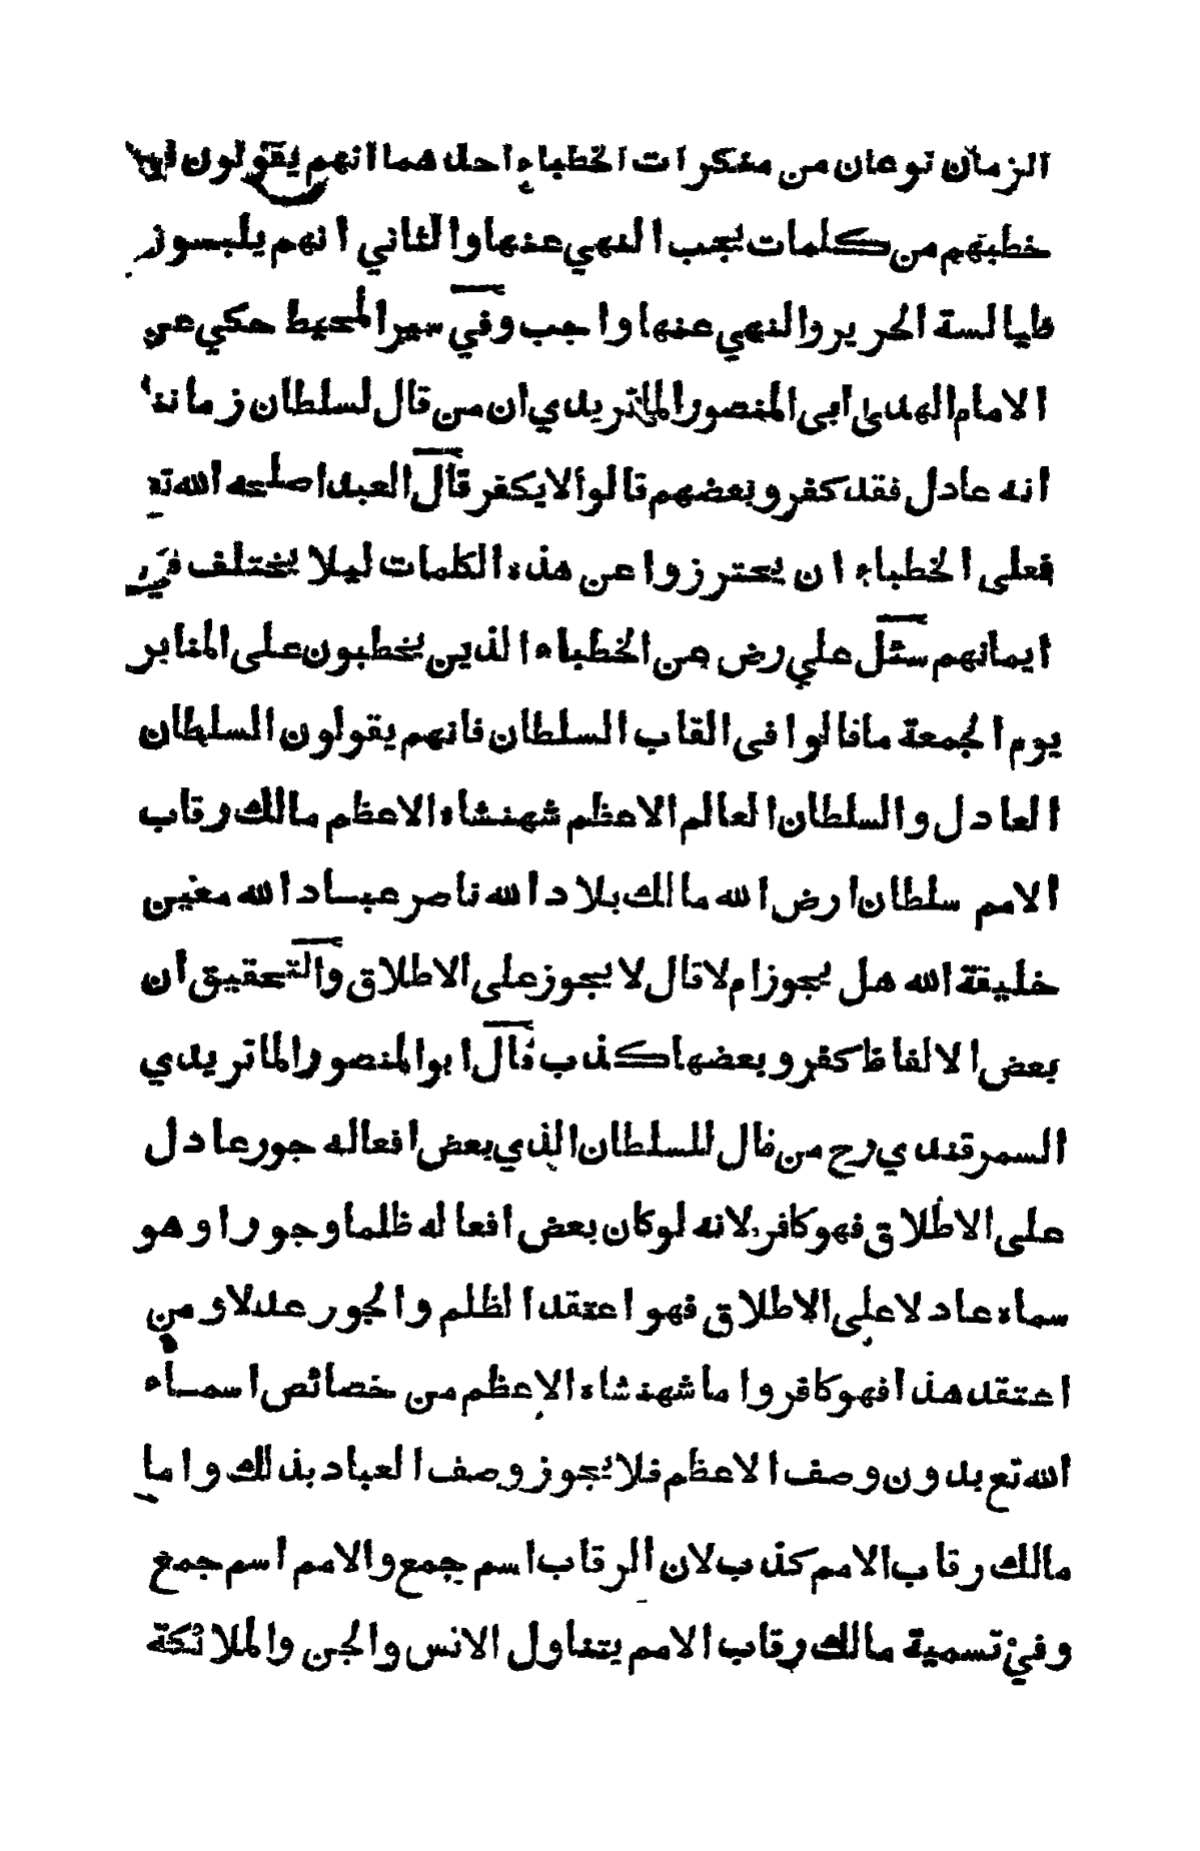 الزمان نوعان من منكرات الخطباء احدهما انهم يقولون في
خطبتهم من كلمات يجب النهي عنها والثاني انهم يلبسون
طيالسة الحرير والنهي عنها واجب وفي سير المحيط حكي عن
الامام الهدى ابى المنصور الماتريدي ان من قال لسلطان زماننا
انه عادل فقد كفر وبعضهم قالوا لا يكفر قال العبد اصلحه الله تع
فعلى الخطباء ان يحترزوا عن هذه الكلمات ليلا يختلف في
ايمانهم سئل علي رض عن الخطباء الذين يخطبون على المنابر
يوم الجمعة ما قالوا فى القاب السلطان فانهم يقولون السلطان
العادل والسلطان العالم الاعظم شهنشاه الاعظم مالك رقاب
الامم سلطان ارض الله مالك بلاد الله ناصر عباد الله معين
خليفة الله هل يجوز ام لا قال لا يجوز على الاطلاق والتحقيق ان
بعض الالفاظ كفر وبعضها كذب قال ابو المنصور الماتريدي
السمرقندي رح من قال للسلطان الذي بعض افعاله جور عادل
على الاطلاق فهو كافر لانه لو كان بعض افعاله ظلما وجورا وهو
سماه عادلا على الاطلاق فهو اعتقد الظلم والجور عدلا ومن
اعتقد هذا فهو كافر واما شهنشاه الاعظم من خصائص اسماء
الله تع بدون وصف الاعظم فلا يجوز وصف العباد بذلك واما
مالك رقاب الامم كذب لان الرقاب اسم جمع والامم اسم جمع
وفي تسمية مالك رقاب الامم يتناول الانس والجن والملائكة